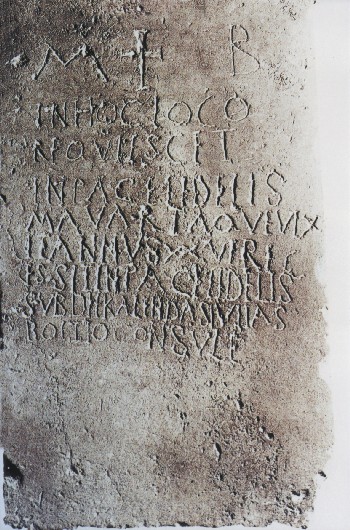 M + B
INHOC LOCO
REQVIESCET
INPACE FIDELIS
MAVARTAQVEVIX
ITANNVS REC
ESSIT INPACE FIDELIS
SVBDIEKALENDASIVLIAS
BOETIOCONSVLE